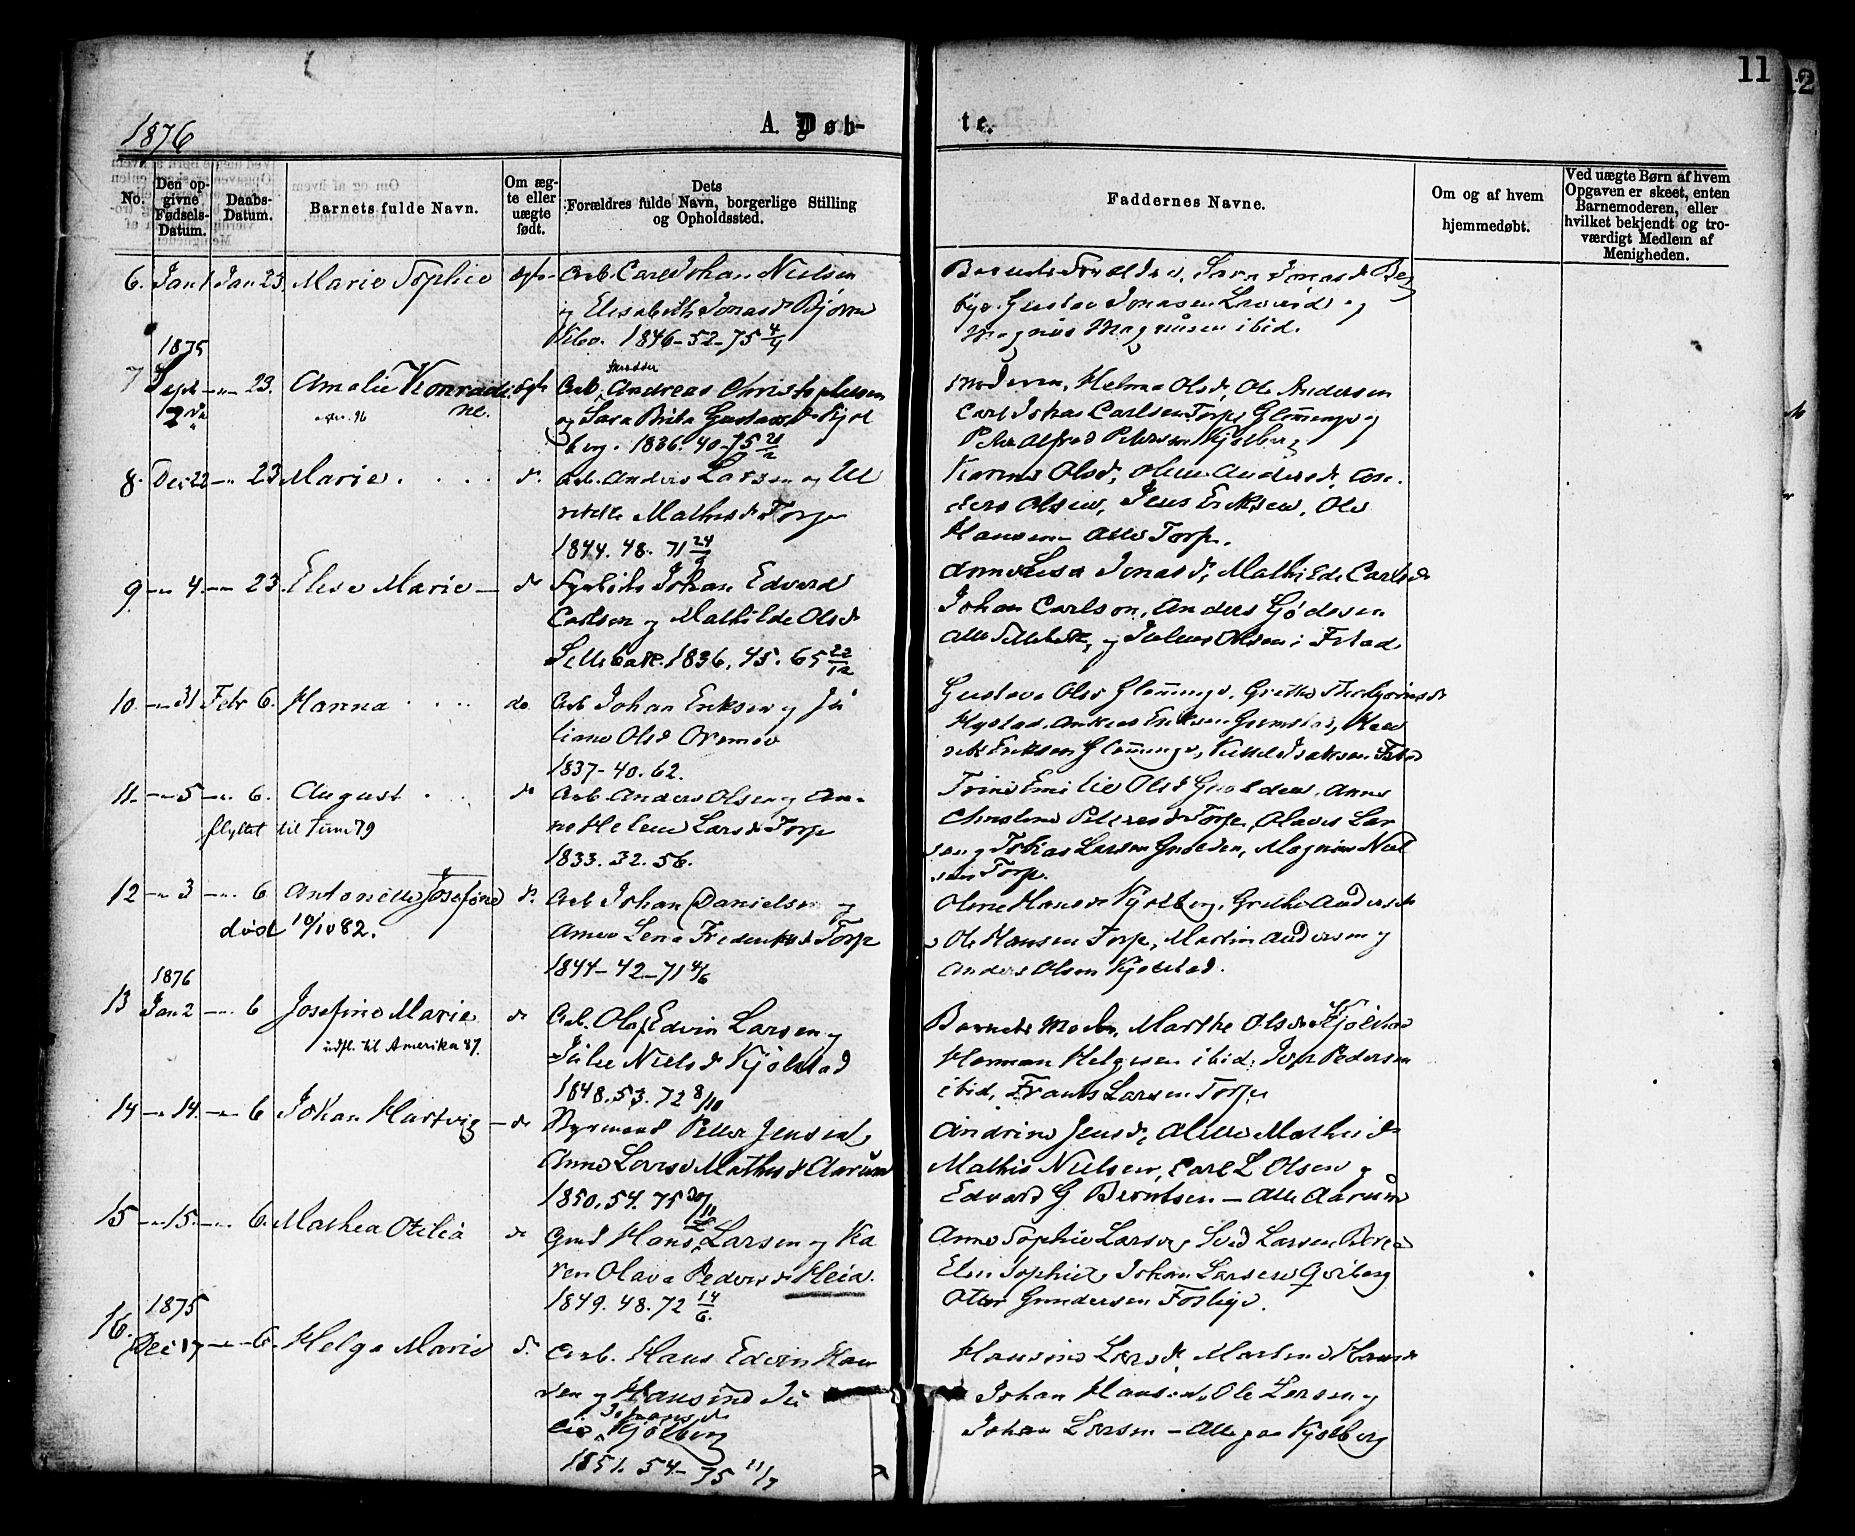 11
12
1876
A. Døb-
te.
No.
Den op-
givne
Fødsels-
Datum.
Daabs-
Datum.
Barnets fulde Navn.
Om æg-
te eller
uægte
født.
Dets
Forældres fulde Navn, borgerlige Stilling
og Opholdssted.
Faddernes Navne.
Om og af hvem
hjemmedøbt.
Ved uægte Børn af hvem
Opgaven er skeet, enten
Barnemoderen, eller
hvilket bekjendt og tro-
værdigt Medlem af
Menigheden.
6. Jan 1 Jan 23. Marie Sophie ægte Arb. Carl Johan Nielsen
og Elisabeth Jonasd Bjørne
1846-52-75 4/9
Barnets Forældre, Sara Jonasd
Gustav Jonasen og
Magnus Magnusen ibid.
1875
7 Sept 2 -"- 23. Amalie Konradi ægte Arb. Andreas Christophersen
ne.
Skrædder
og Sara Brita Gustavsd Kjøl
berg. 1836. 40-75 21/2
Moderen, Helene Olsd, Ole Andersen
Carl Johan Carlsen Torp, Glemminge og
Peter Alfred Petersen Kjølberg
8. Dec 22 -"- 23 Marie. d. Arb. Anders Larsen og Ul
rikke Mathisd Torp
1844. 48. 71 24/
Karine Olsd, Oline Andersd, An-
ders Olsen, Jens Eriksen, Ole
Hansen - Alle Torp.
9 -"- 4. -"- 23. Elise Marie - d Fyrbøder Johan Edvard
Carlsen og Mathilde Olsd
Sellebakk. 1836. 45. 65 22/12
Anne Lisa Jonasd, Mathilde Carlsd
Johan Carlson, Anders Gødesen
alle Sellebakk, og Julius Olsen i Fstad
10 -"- 31 Febr 6. Hanna do Arb Johan Eriksen og Ju
liane Olsd
1837-40. 62.
Gustava Olsd Glemminge, Grethe
Andreas Eriksen
Eriksen Glemminge, Isaksen Fstad
11. -"- 5 -"- 6. August d Arb. Anders Olsen og An-
flyttet til Tune 79
ne Helene Larsd Torp
1833. 32. 56.
Trine Emilie Olsd Anne
Christine Petersd Torp, Olaves Lar
sen og Tobias Larsen Magnus Niel
sen Torp.
12 -"- 3 -"- 6 Antonette Josefine d. Arb Johan Danielsen og
død 10/10 82.
Anne Lena Frederiksd Torp
1844-42-71 4/6
Oline Hansd Kjølberg, Grethe Andersd
Ole Hansen Torp, Martin Andersen og
Anders Olsen Kjølstad.
1876
13 Jan 2 -"- 6 Josefine Marie d Arb. Olaf Edvin Larsen og
udfl. til Amerika 87.
Julie Nielsd Kjølstad
1848. 53. 72 8/10
Barnets Moder, Marthe Olsd Kjølstad
Herman Helgesen ibid, Pedersen
ibid, Frants Larsen Torp
14 -"- 14. -"- 6 Johan Hartvig - d Styrmand Peter Jensen
Anne Lovise Mathisd Aarum
1850. 54. 75 30/11
Andrine Jensd, Mathisd
Mathis Nielsen, Carl L Olsen og
Edvard G Berntsen - Alle Aarum
15 -"- 15. -"- 6. Mathea Otilia d Gmd Hans Larsen og Ka
ren Olava Pedersd Heia.
1849. 48. 72 14/6.
Anne Sophie Larsd, Larsen
Elen Sophie, Johan Larsen
Otter Gundersen
1875
16. Dec 17 -"- 6. Helga Marie d. Arb. Hans Edvin Han
sen og Hansine Ju
lie Johansd Kjølberg
1851. 54-75 11/7
Hansine Larsd, Martine Hansd
Johan Hansen, Ole Larsen og
Johan Larsen - Alle paa Kjølberg